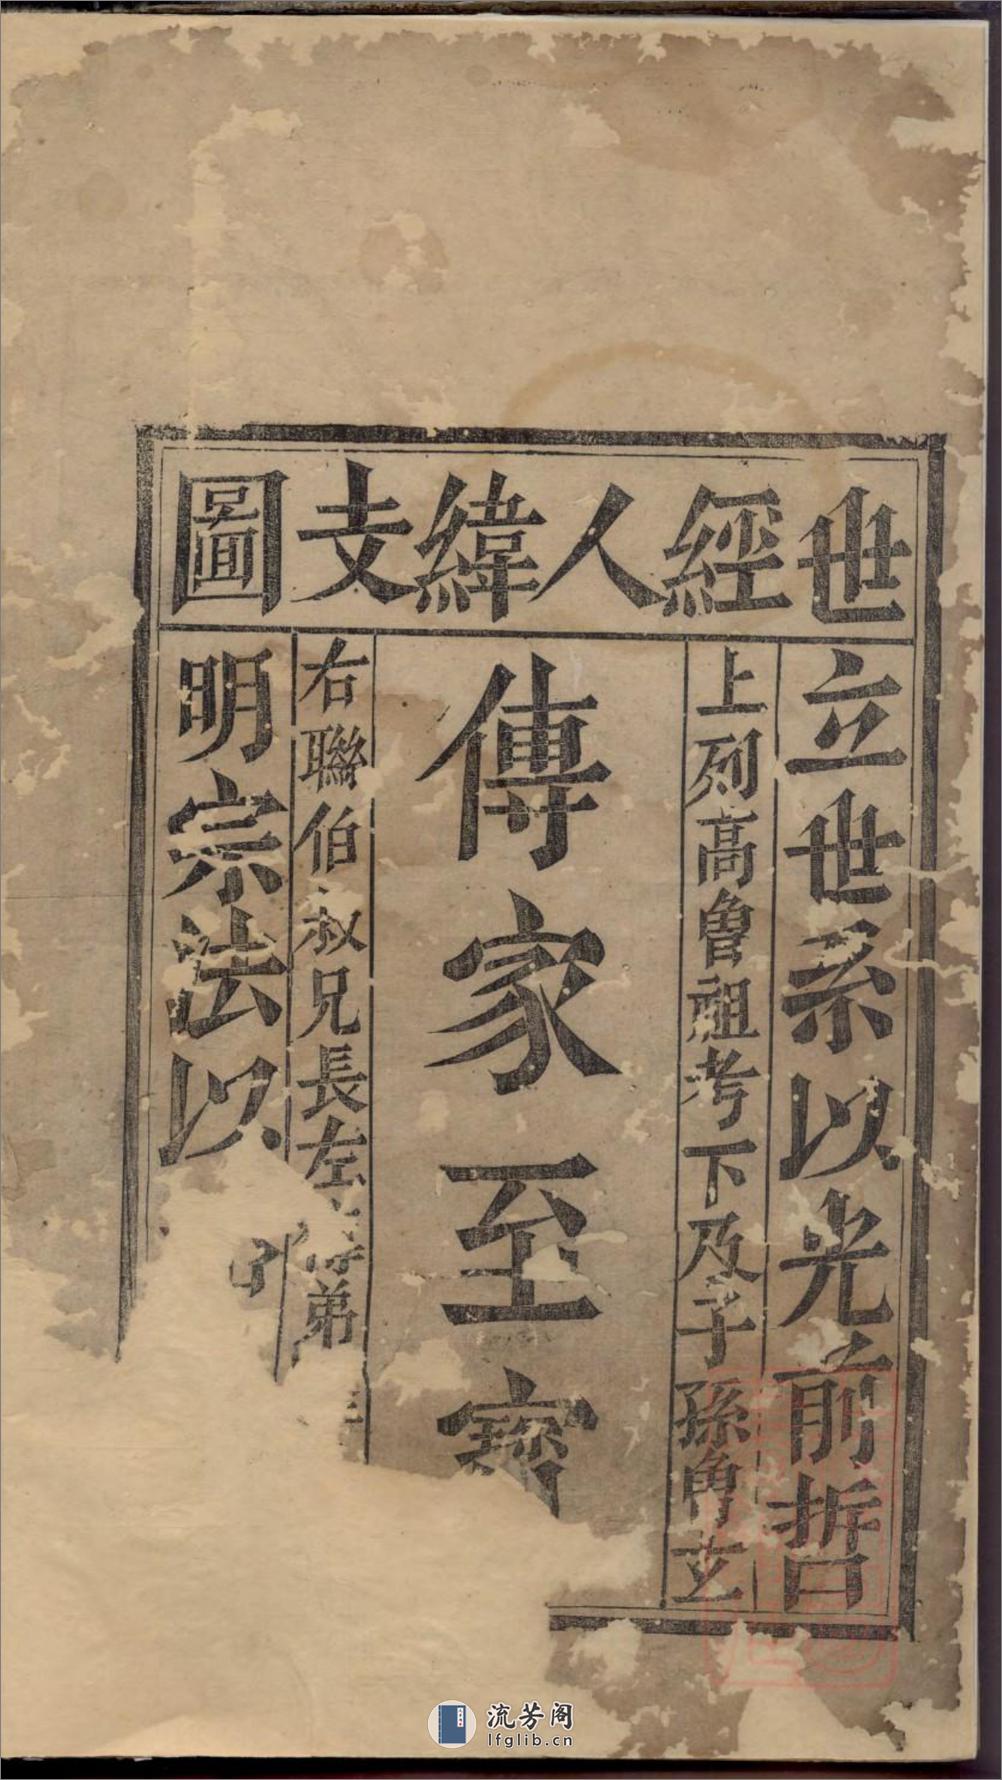 世經人緯支圖
立世系以光前哲
上列高曾祖考下及子孫曾玄
傳家至寶
右聯伯叔兄長左 弟
明宗法以
流芳阁
lfglib.cn